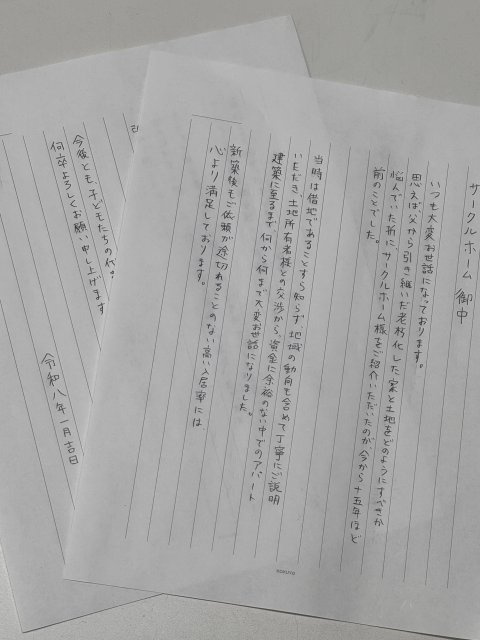 サークルホーム 御中
いつも大変お世話になっております。
思えば父から引き継いだ老朽化した家と土地をどのようにすべきか
悩んでいた折に、サークルホーム様をご紹介いただいたのが今から十五年ほど
前のことでした。
当時は借地であることすら知らず、地域の動向も含めて丁寧にご説明
いただき、土地所有者様との交渉から、資金に余裕のない中でのアパート
建築に至るまで何から何まで大変お世話になりました。
新築後もご依頼が途切れることのない高い入居率には
心より満足しております。
KOKUYO
今後とも、子どもたちの代
何卒よろしくお願い申し上げます
令和八年一月吉日